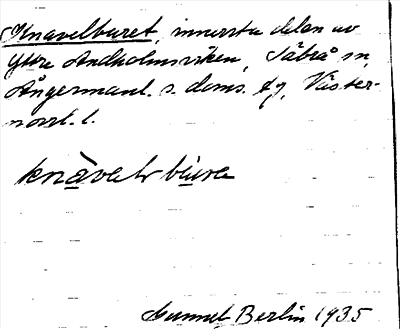 Knavelburet, innersta delen av
Yttre Andholmsviken, Säbrå sn,
Ångermanl. s. doms. tg, Väster-
norrl. l.
knavel bure
Gunnel Berlin 1935